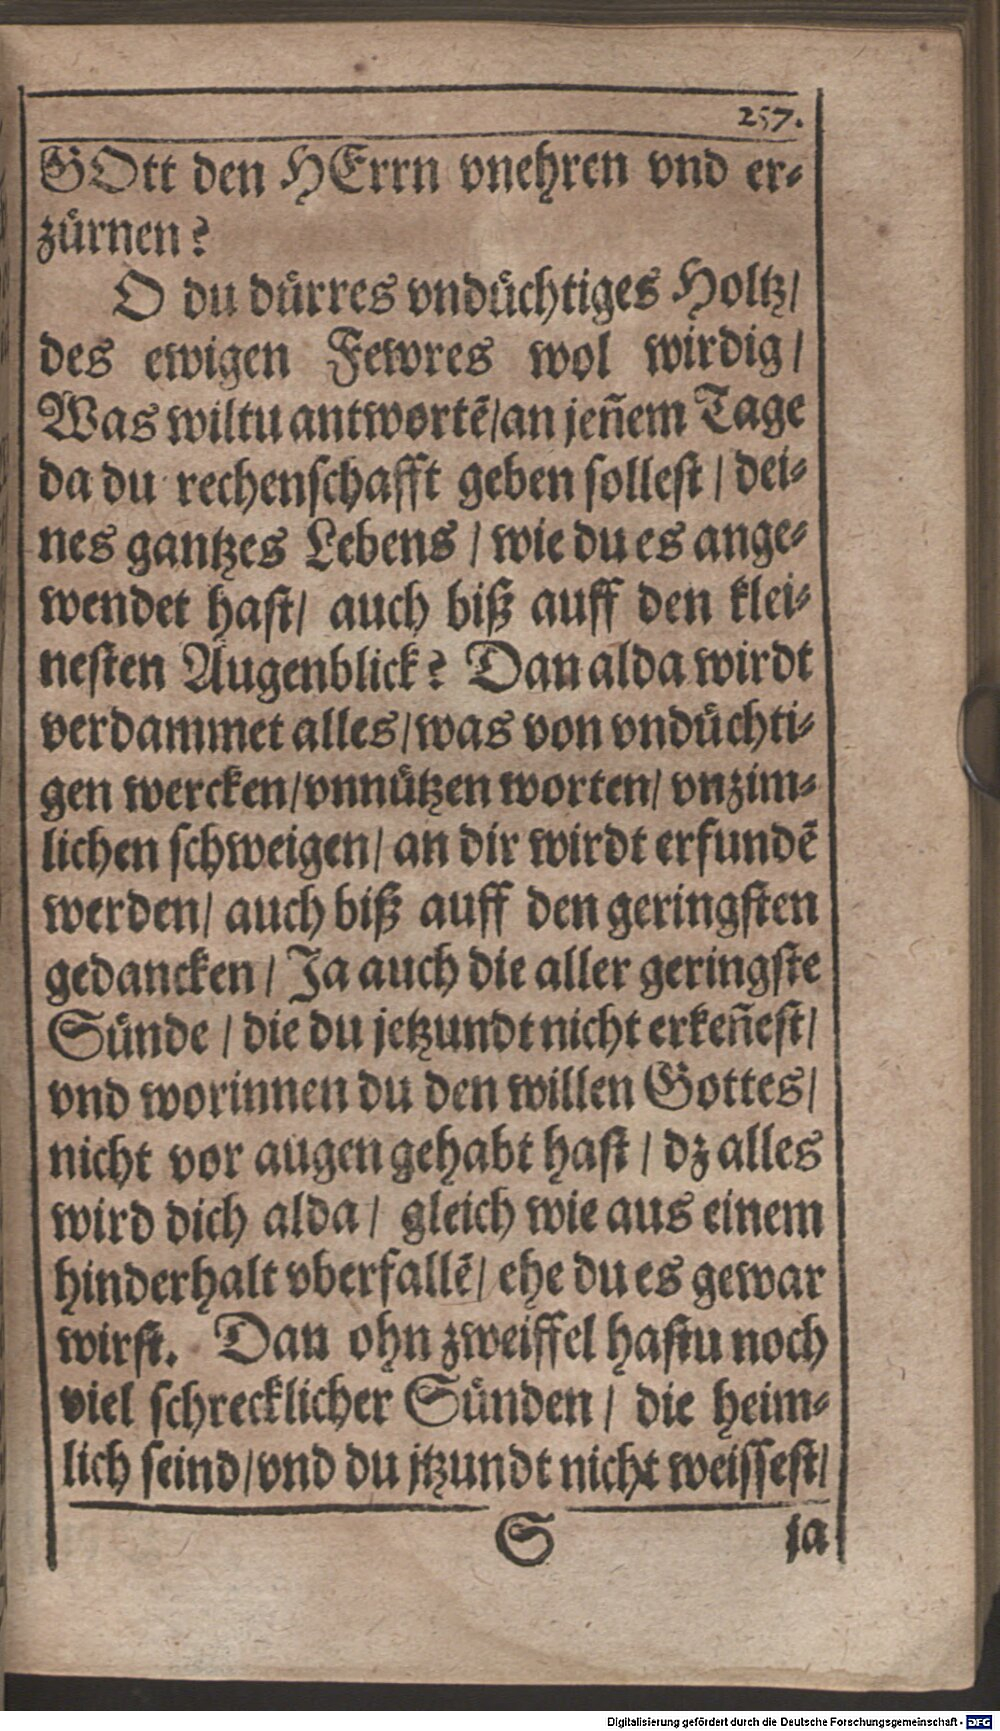 257.
GOtt den HErrn vnehren vnd er-
zürnen?
O du dürres vndüchtiges Holtz/
des ewigen Fewres wol wirdig/
Was wiltu antwortē/an jeñem Tage
da du rechenschafft geben sollest/ dei-
nes gantzes Lebens / wie du es ange-
wendet hast/ auch biß auff den klei-
nesten Augenblick? Dan alda wirdt
verdammet alles/was von vndüchti-
gen wercken/vnnützen worten/ vnzim-
lichen schweigen/ an dir wirdt erfundē
werden/ auch biß auff den geringsten
gedancken/ Ja auch die aller geringste
Sünde / die du jetzundt nicht erkeñest/
vnd worinnen du den willen Gottes/
nicht vor augen gehabt hast / dz alles
wird dich alda / gleich wie aus einem
hinderhalt vberfallē/ ehe du es gewar
wirst. Dan ohn zweiffel hastu noch
viel schrecklicher Sünden / die heim-
lich seind/vnd du jtzundt nicht weissest/
S ja
Digitalisierung gefördert durch die Deutsche Forschungsgemeinschaft - DFG